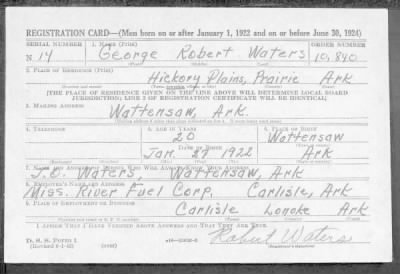 REGISTRATION CARD—(Men born on or after January 1, 1922 and on or before June 30, 1924)
SERIAL NUMBER 1. NAME (Print) ORDER NUMBER
N 14 George Robert Waters 10,840
2. PLACE OF RESIDENCE (Print)
Hickory Plains, Prairie Ark
[THE PLACE OF RESIDENCE GIVEN ON THE LINE ABOVE WILL DETERMINE LOCAL BOARD
JURISDICTION; LINE 2 OF REGISTRATION CERTIFICATE WILL BE IDENTICAL]
3. MAILING ADDRESS
Wattensaw, Ark.
4. TELEPHONE 5. AGE IN YEARS 6. PLACE OF BIRTH
20 Wattensaw
DATE OF BIRTH
Jan. 27 1922 Ark
7. NAME AND ADDRESS OF PERSON WHO WILL ALWAYS KNOW YOUR ADDRESS
Waters, Wattensaw, Ark
8. EMPLOYER'S NAME AND ADDRESS
Miss. River Fuel Corp. Carlisle, Ark
9. PLACE OF EMPLOYMENT OR BUSINESS
Carlisle Lonoke Ark
I AFFIRM THAT I HAVE VERIFIED ABOVE ANSWERS AND THAT THEY ARE TRUE.
D. S. S. FORM 1
Robert Waters